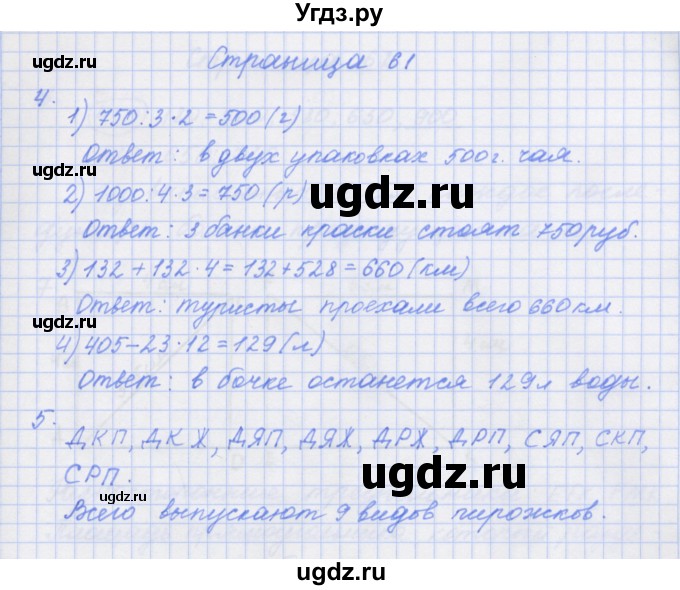 Угдз.ру
Страница 61
4.
1) 750:3·2=500(г)
Ответ: в двух упаковках 500г. чая.
2) 1000:4·3=750(р)
Ответ: 3 банки краски стоят 750руб.
3) 132+132·4=132+528=660(км)
Ответ: туристы проехали всего 660км.
4) 405-23·12=129(л)
Ответ: в бочке останется 129л воды.
5.
ДКП, ДКЖ, ДЯП, ДЯЖ, ДРЖ, ДРП, СЯП, СКП,
СРП.
Всего выпускают 9 видов пирожков.
ugdz.ru
ugdz.ru
ugdz.ru
ugdz.ru
ugdz.ru
ugdz.ru
ugdz.ru